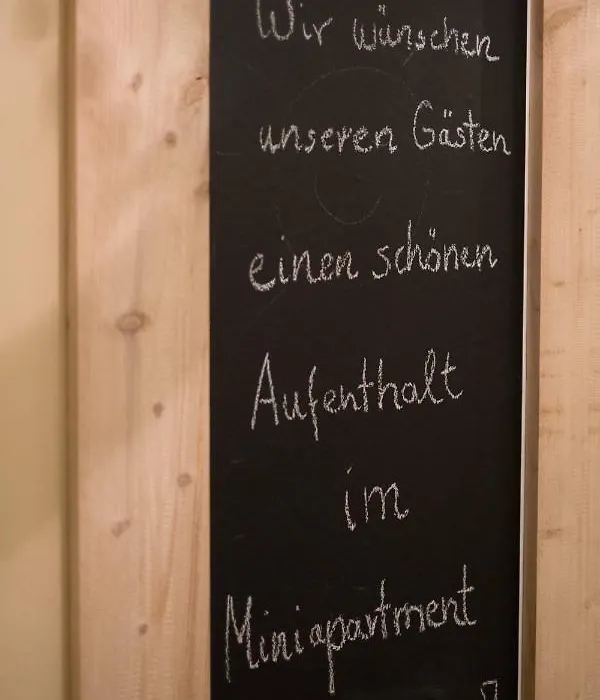 Wir wünschen
unseren Gästen
einen schönen
Aufenthalt
im
Miniapartment